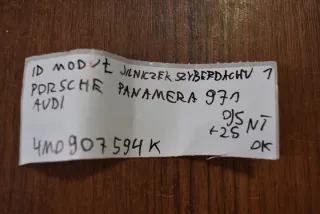 ID MODUŁ SILNICZEK SZYBERDACHU 1
PORSCHE PANAMERA 971
AUDI
+25 NT
4M0907594K OK